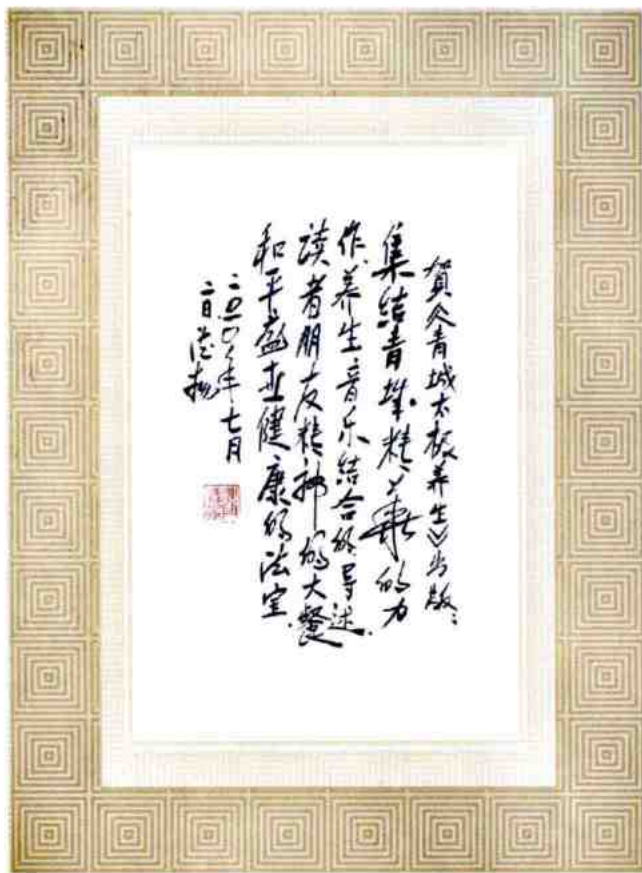 賀《青城太极养生》出版：
集结青城精华的力
作、养生音乐结合的导述、
读者朋友精神的大餐
和平盛世健康的法宝、
二〇〇八年七月
二日